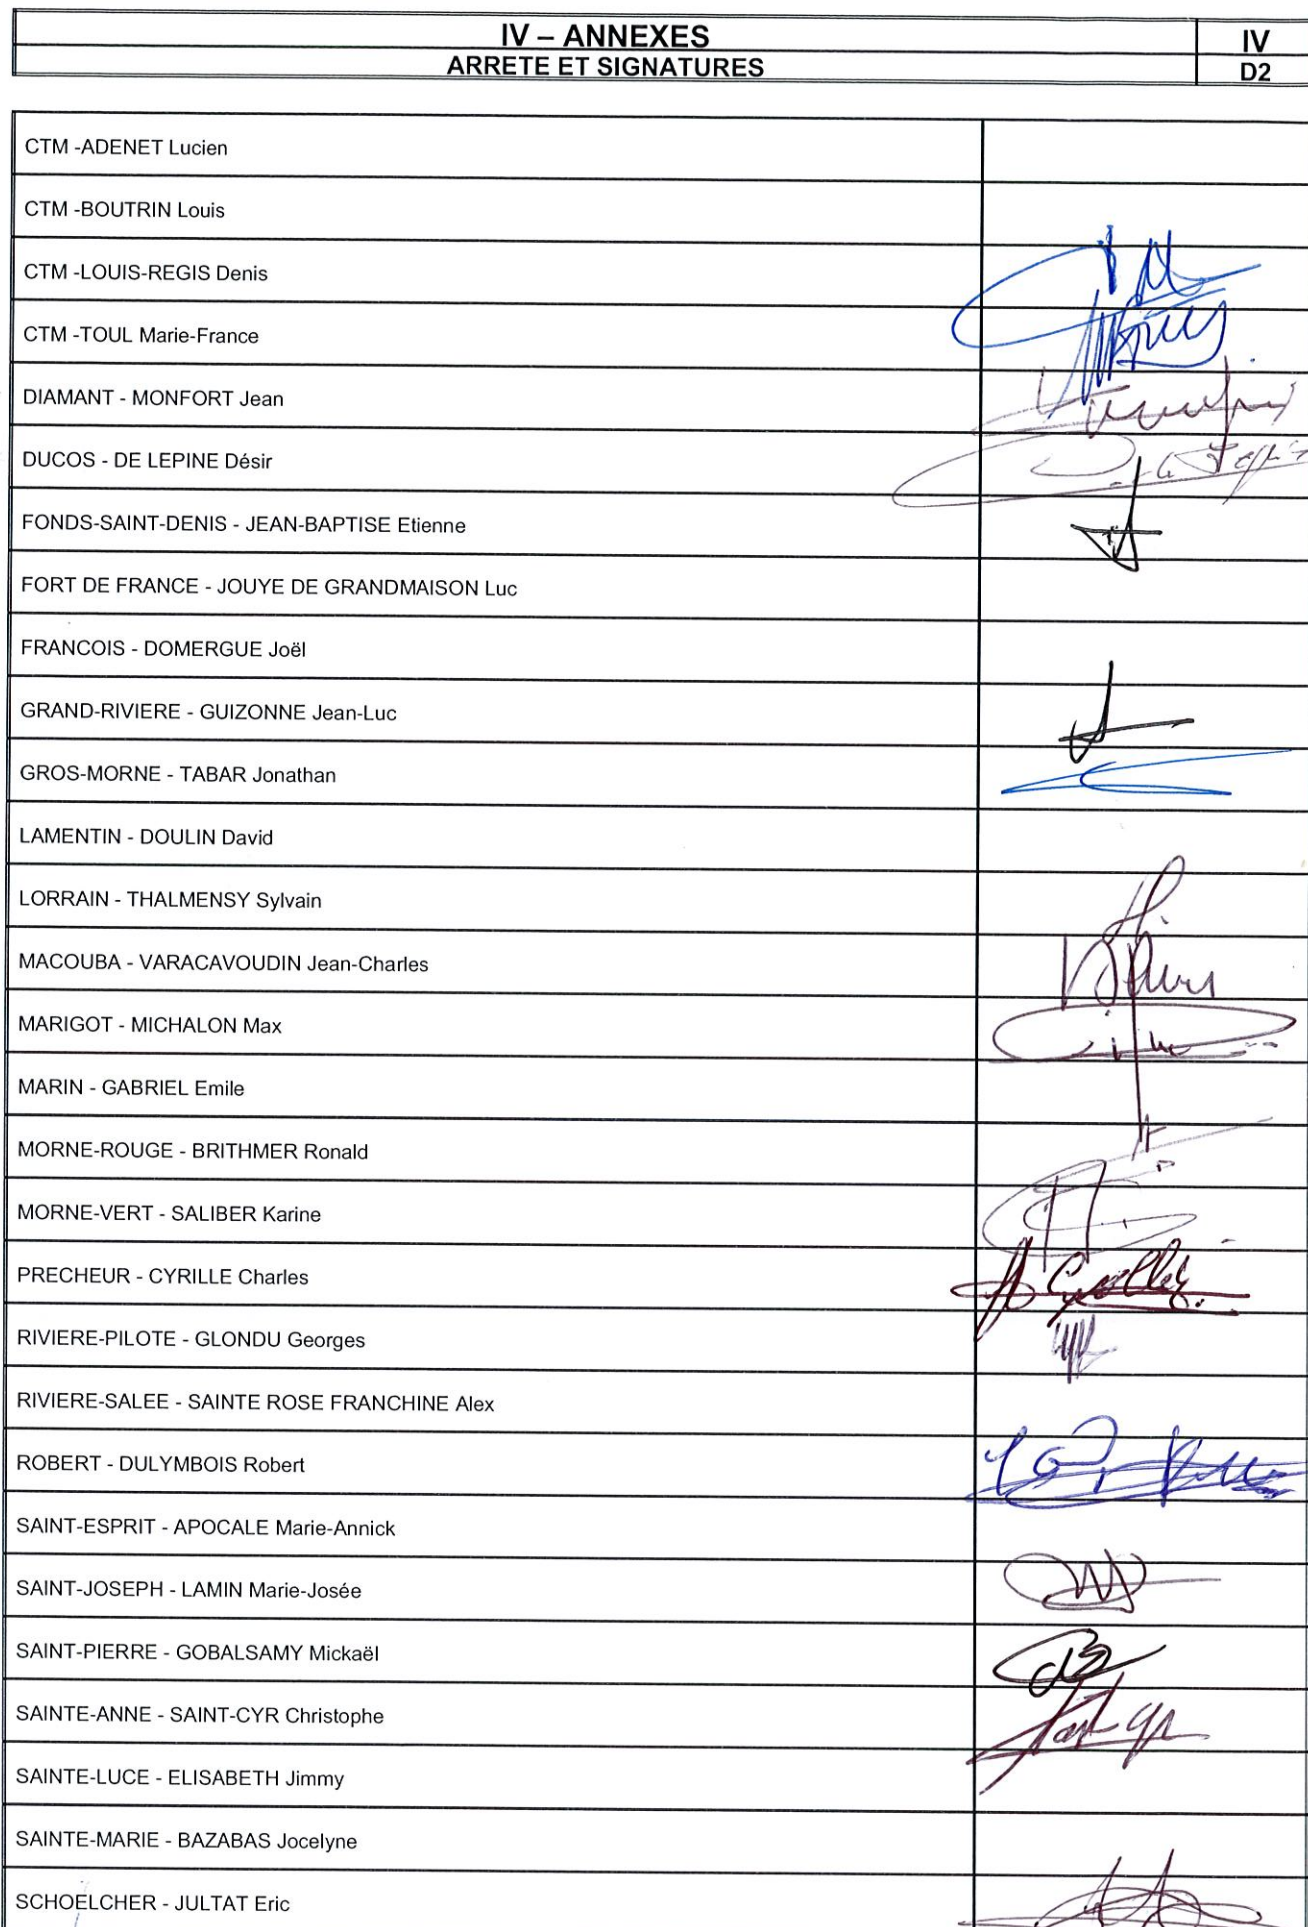 IV – ANNEXES
IV
ARRETE ET SIGNATURES
D2
CTM -ADENET Lucien
CTM -BOUTRIN Louis
CTM -LOUIS-REGIS Denis
CTM -TOUL Marie-France
DIAMANT - MONFORT Jean
DUCOS - DE LEPINE Désir
FONDS-SAINT-DENIS - JEAN-BAPTISE Etienne
FORT DE FRANCE - JOUYE DE GRANDMAISON Luc
FRANCOIS - DOMERGUE Joël
GRAND-RIVIERE - GUIZONNE Jean-Luc
GROS-MORNE - TABAR Jonathan
LAMENTIN - DOULIN David
LORRAIN - THALMENSY Sylvain
MACOUBA - VARACAVOUDIN Jean-Charles
MARIGOT - MICHALON Max
MARIN - GABRIEL Emile
MORNE-ROUGE - BRITHMER Ronald
MORNE-VERT - SALIBER Karine
PRECHEUR - CYRILLE Charles
RIVIERE-PILOTE - GLONDU Georges
RIVIERE-SALEE - SAINTE ROSE FRANCHINE Alex
ROBERT - DULYMBOIS Robert
SAINT-ESPRIT - APOCALE Marie-Annick
SAINT-JOSEPH - LAMIN Marie-Josée
SAINT-PIERRE - GOBALSAMY Mickaël
SAINTE-ANNE - SAINT-CYR Christophe
SAINTE-LUCE - ELISABETH Jimmy
SAINTE-MARIE - BAZABAS Jocelyne
SCHOELCHER - JULTAT Eric